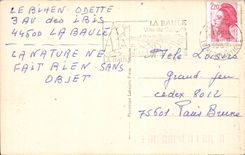 LE BIHEN ODETTE
3 AV des IBIS
44500 LA BAULE
LA NATURE NE
FAIT RIEN SANS
OBJET
LA BAULE
2,20
Télé Loisirs
grand jeu
cedex 8012
75601 Paris Brune